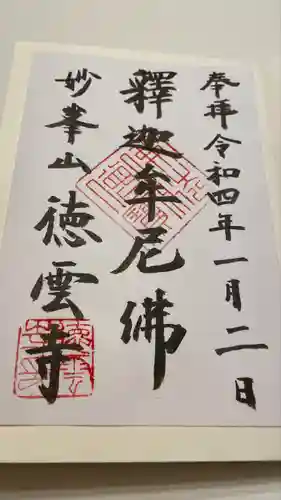 奉拝 令和四年一月二日
釋迦牟尼佛
妙峯山 徳雲寺